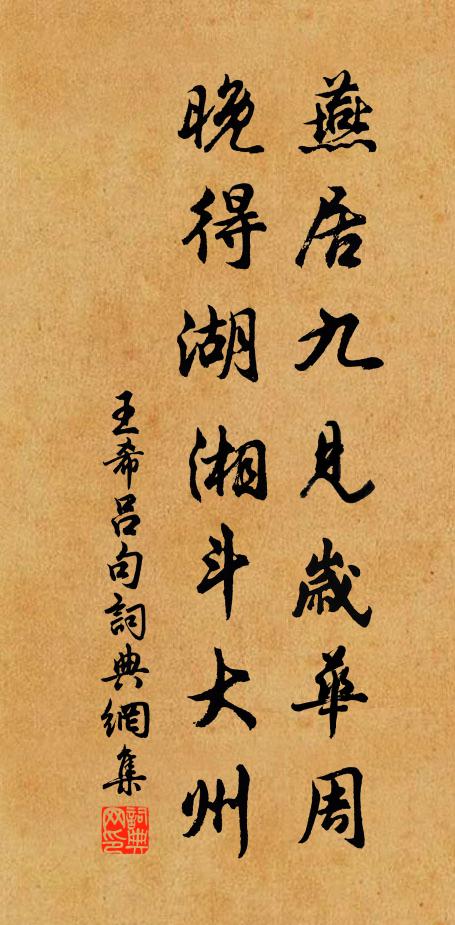 燕居九見歲華周
晚得湖湘斗大州
王希呂句詞典網集
詞典網印